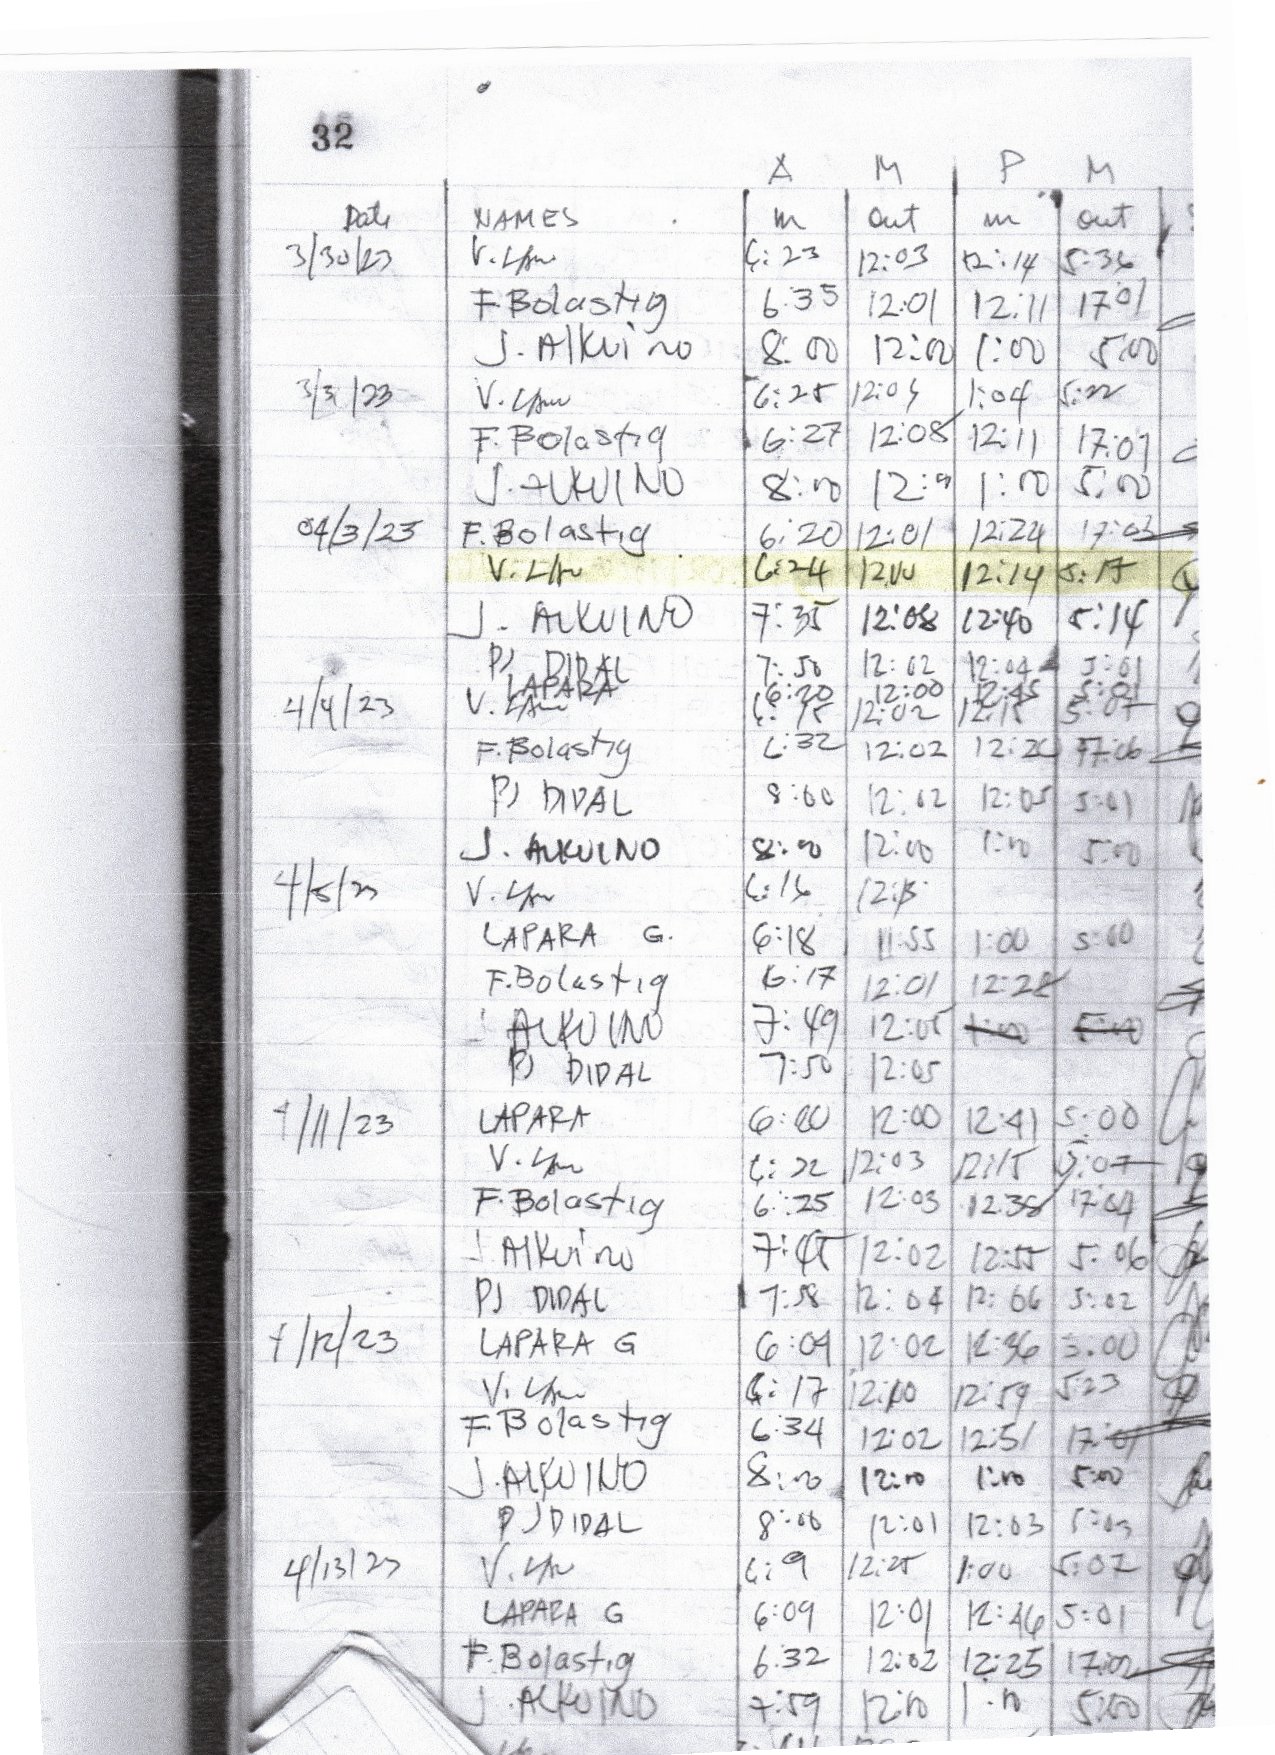 32
A M P M
Date NAMES in out in out
3/30/23 V. 6:23 12:03 12:14 5:36
F. Bolastig 6:35 12:01 12:11 17:01
J. Alkuino 8:00 12:00 1:00 5:00
3/31/23 V. 6:25 1:04 5:22
F. Bolastig 6:27 12:08 12:11 17:07
J. ALKUINO 8:00 1:00 5:00
04/3/23 F. Bolastig 6:20 12:01 12:24 17:03
V. 6:24 12:14 5:17
J. ALKUINO 7:35 12:08 12:40 5:14
PJ DIDAL 7:50 12:02 12:04 5:01
LAPARA 6:20 12:00 12:45 5:01
4/4/23 V. 6:15 12:02 12:15 5:07
F. Bolastig 6:32 12:02 12:20 17:06
PJ DIDAL 8:00 12:02 12:05 5:01
J. ALKUINO 8:00 12:00 1:00 5:00
4/5/23 V. 6:16
LAPARA G. 6:18 11:55 1:00 5:00
F. Bolastig 6:17 12:01 12:28
J ALKUINO 7:49 12:05 1:00 5:00
PJ DIDAL 7:50 12:05
4/11/23 LAPARA 6:20 12:00 12:41 5:00
V. 6:22 12:03 12:15 5:07
F. Bolastig 6:25 12:03 12:38 17:04
J. Alkuino 7:45 12:02 12:55 5:06
PJ DIDAL 7:58 12:04 12:06 5:02
4/12/23 LAPARA G 6:09 12:02 12:36 5:00
V. 6:17 12:10 12:59 5:23
F. Bolastig 6:34 12:02 12:51 17:01
J. ALKUINO 8:00 12:00 1:00 5:00
PJ DIDAL 8:00 12:01 12:03 5:03
4/13/23 V. 6:9 12:25 1:00 5:02
LAPARA G 6:09 12:01 12:46 5:01
F. Bolastig 6:32 12:02 12:25 17:02
J. ALKUINO 7:59 12:00 1:00 5:00